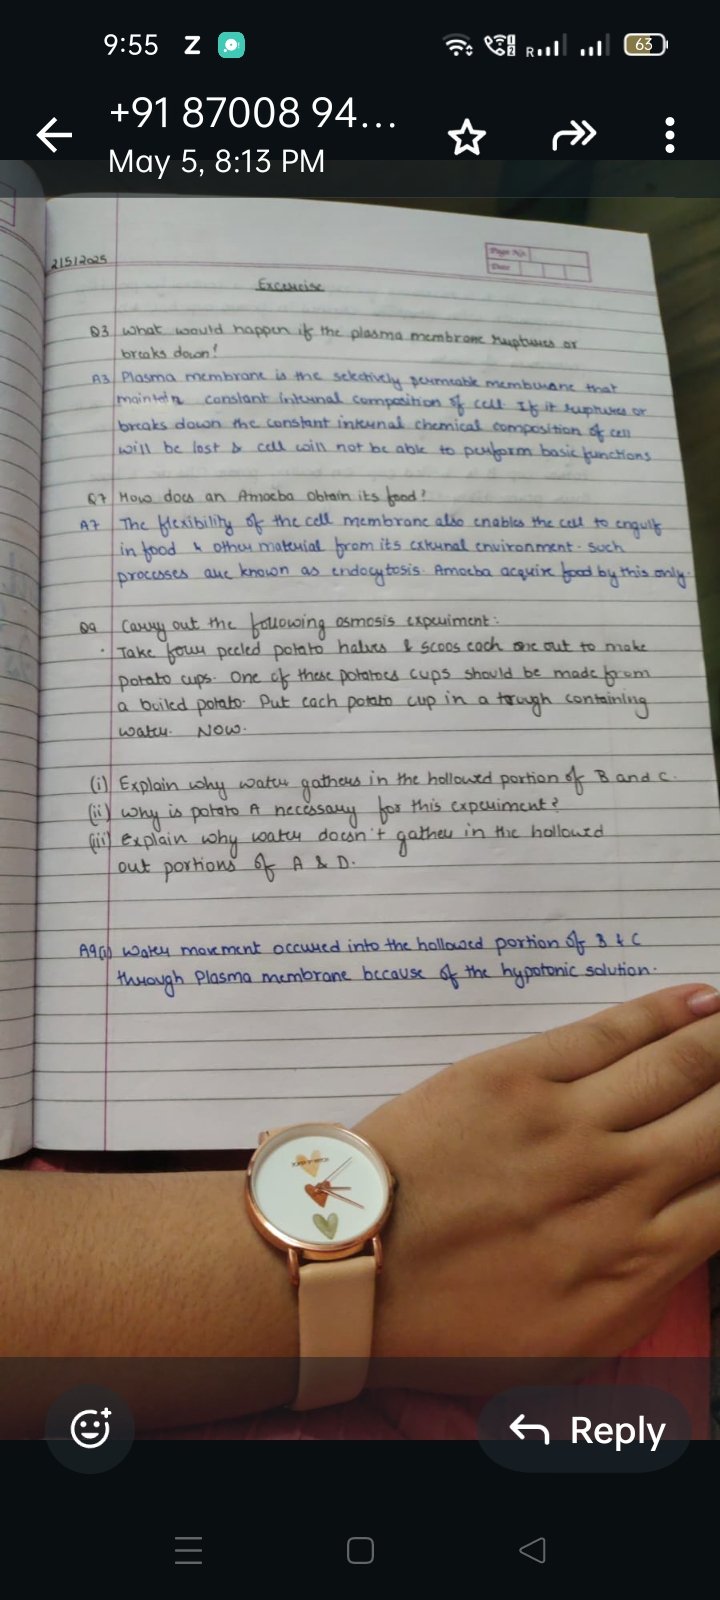 9:55 Z
63
+91 87008 94...
May 5, 8:13 PM
Page No.
Date
2/5/2025
Excercise
Q3 What would happen if the plasma membrane ruptures or
breaks down?
A3 Plasma membrane is the selectively permeable membrane that
maintain constant internal composition of cell. If it ruptures or
breaks down the constant internal chemical composition of cell
will be lost & cell will not be able to perform basic functions
Q7 How does an Amoeba obtain its food?
A7 The flexibility of the cell membrane also enables the cell to engulf
in food & other material from its external environment. Such
processes are known as endocytosis. Amoeba acquire food by this only.
Q9 Carry out the following osmosis experiment:
· Take four peeled potato halves & scoos each one out to make
potato cups. One of these potatoes cups should be made from
a boiled potato. Put each potato cup in a trough containing
water. Now.
(i) Explain why water gathers in the hollowed portion of B and C.
(ii) Why is potato A necessary for this experiment?
(iii) Explain why water doesn't gather in the hollowed
out portions of A & D.
A9(i) Water movement occured into the hollowed portion of B & C
through Plasma membrane because of the hypotonic solution.
Reply